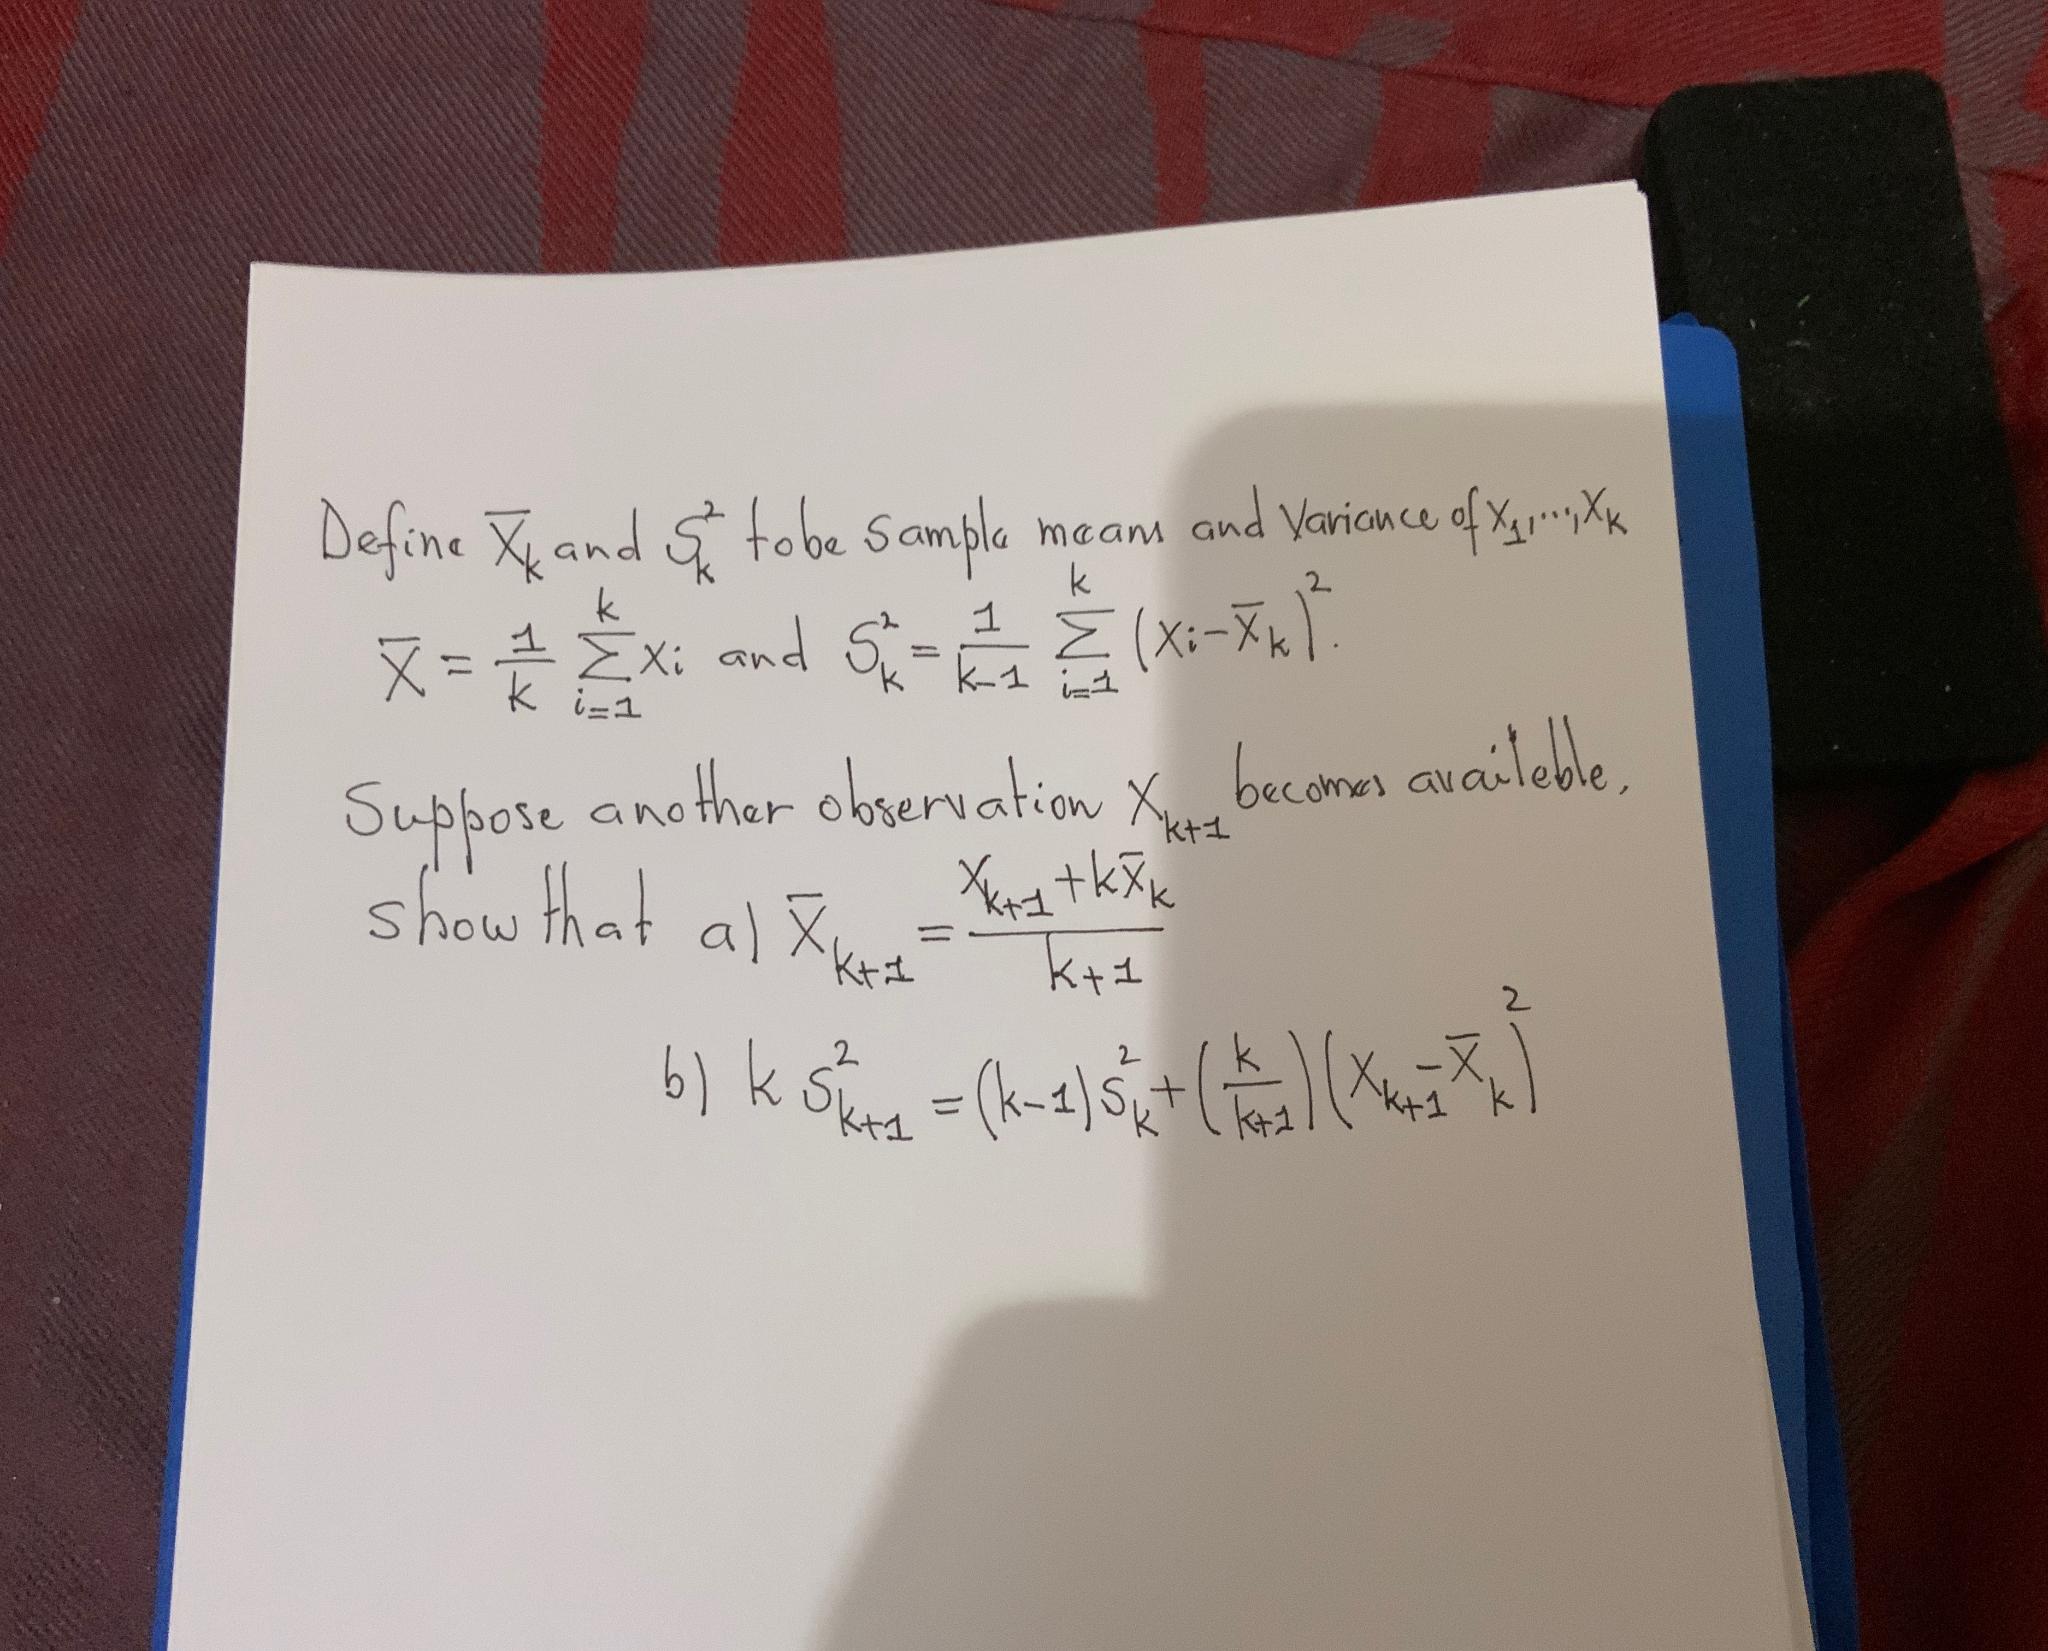 Define X̄ₖ and Sₖ² to be sample means and Variance of X₁,...,Xₖ
X̄ = 1/k Σᵢ₌₁ᵏ xᵢ and Sₖ² = 1/(k-1) Σᵢ₌₁ᵏ (xᵢ-x̄ₖ)².
Suppose another observation Xₖ₊₁ becomes availeble.
show that a) X̄ₖ₊₁ = (Xₖ₊₁+kx̄ₖ)/(k+1)
b) k S²ₖ₊₁ = (k-1)S²ₖ+(k/(k+1))(Xₖ₊₁-X̄ₖ)²